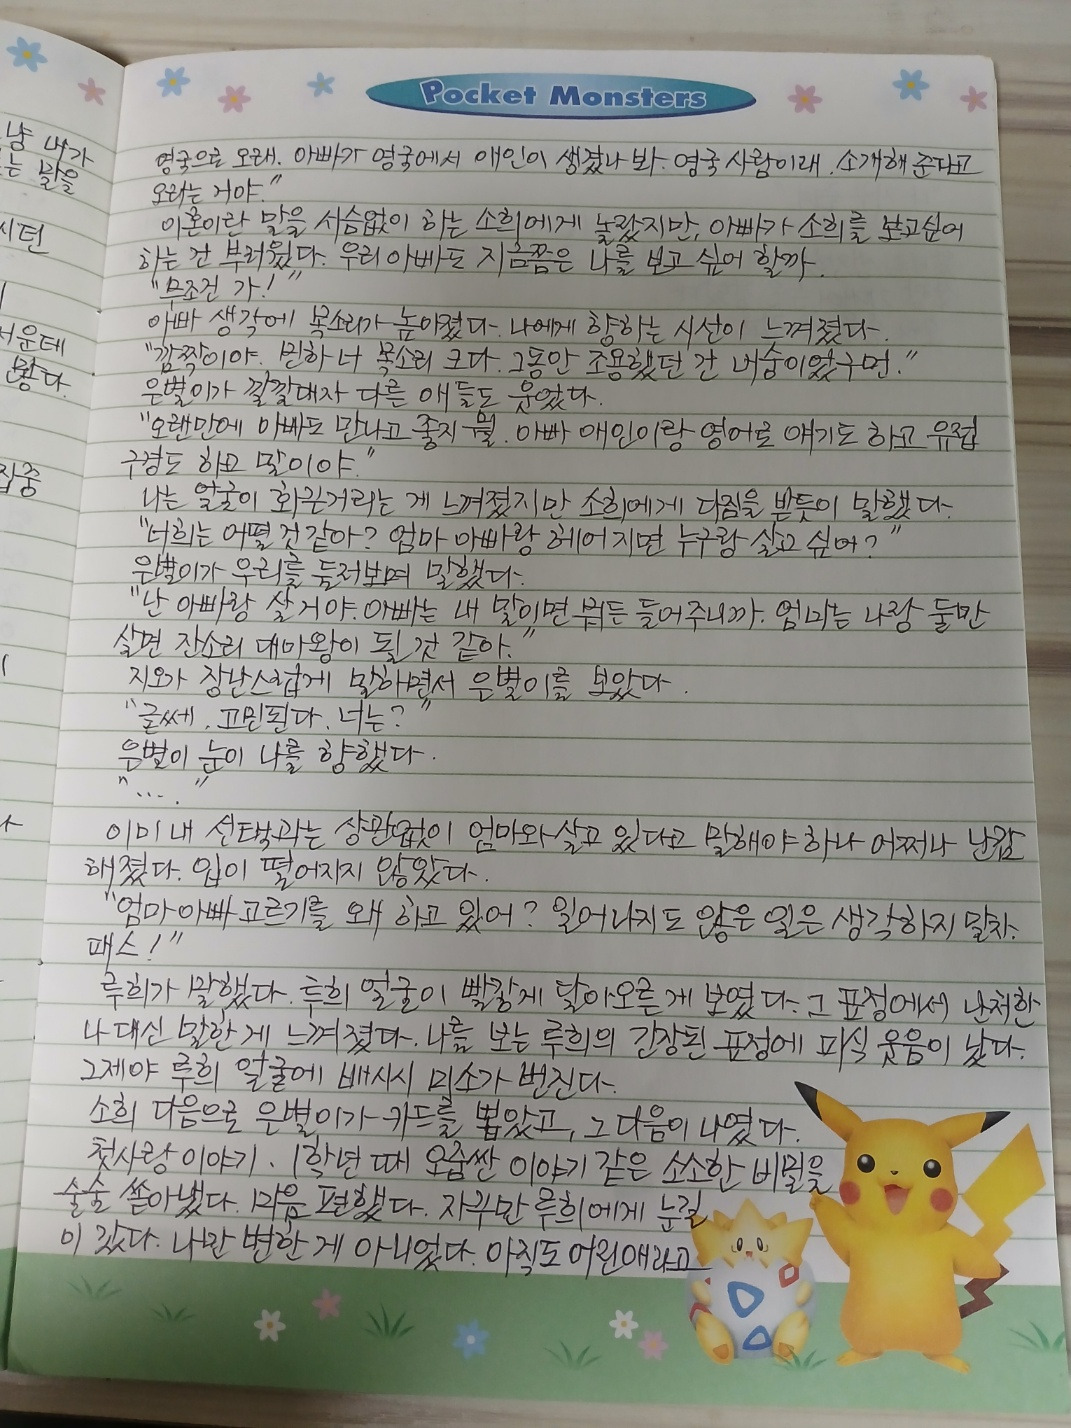 Pocket Monsters
냥 내가
는 말을
시던
서운데
봤다.
집중
영국으로 오래. 아빠가 영국에서 애인이 생겼나 봐. 영국 사람이래. 소개해 준다고
오라는 거야."
이혼이란 말을 서슴없이 하는 소희에게 놀랐지만, 아빠가 소희를 보고싶어
하는 건 부러웠다. 우리 아빠도 지금쯤은 나를 보고 싶어 할까.
"무조건 가!"
아빠 생각에 목소리가 높아졌다. 나에게 향하는 시선이 느껴졌다.
"깜짝이야. 민하 너 목소리 크다. 그동안 조용했던 건 내숭이었구먼."
은별이가 깔깔대자 다른 애들도 웃었다.
"오랜만에 아빠도 만나고 좋지 뭘. 아빠 애인이랑 영어로 얘기도 하고 유럽
구경도 하고 말이야."
나는 얼굴이 화끈거리는 게 느껴졌지만 소희에게 다짐을 받듯이 말했다.
"너희는 어떨 것 같아? 엄마 아빠랑 헤어지면 누구랑 살고 싶어?"
은별이가 우리를 둘러보며 말했다.
"난 아빠랑 살 거야. 아빠는 내 말이면 뭐든 들어주니까. 엄마는 나랑 둘만
살면 잔소리 대마왕이 될 것 같아."
지오가 장난스럽게 말하면서 은별이를 보았다.
"글쎄. 고민된다. 너는?"
은별이 눈이 나를 향했다.
"…."
이미 내 선택과는 상관없이 엄마와 살고 있다고 말해야 하나 어쩌나 난감
해졌다. 입이 떨어지지 않았다.
"엄마 아빠 고르기를 왜 하고 있어? 일어나지도 않은 일은 생각하지 말자.
패스!"
루희가 말했다. 루희 얼굴이 빨갛게 달아오른 게 보였다. 그 표정에서 난처한
나 대신 말한 게 느껴졌다. 나를 보는 루희의 긴장된 표정에 피식 웃음이 났다.
그제야 루희 얼굴에 배시시 미소가 번진다.
소희 다음으로 은별이가 카드를 뽑았고, 그 다음이 나였다.
첫사랑 이야기, 1학년 때 오줌싼 이야기 같은 소소한 비밀을
술술 쏟아냈다. 마음 편했다. 자꾸만 루희에게 눈길
이 갔다. 나만 변한 게 아니었다. 아직도 어린애라고